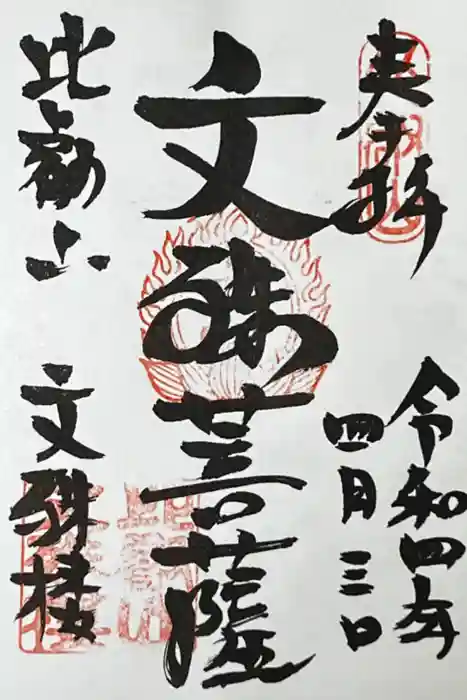 奉拝
令和四年
四月三日
文殊菩薩
比叡山
文殊楼